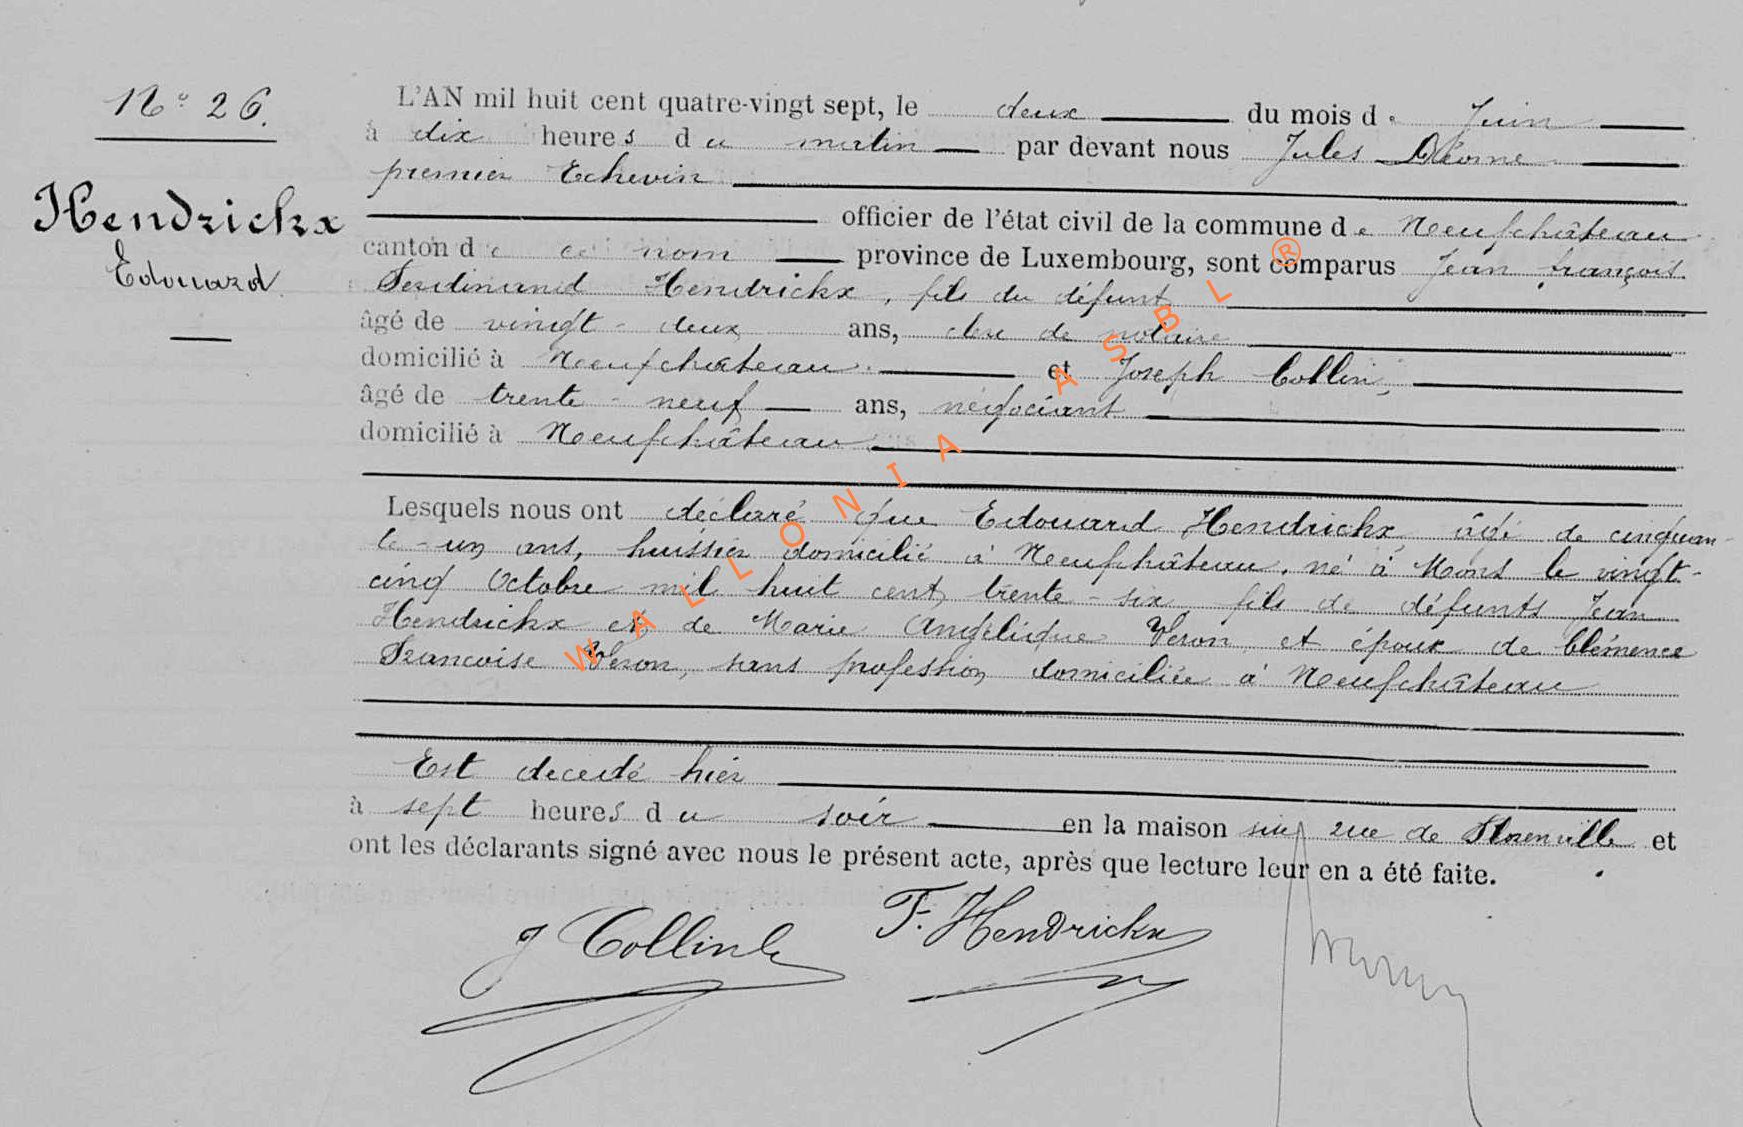 N° 26.
Hendrickx
Edouard
L'AN mil huit cent quatre-vingt sept, le deux du mois de Juin
à dix heures du matin par devant nous Jules
premier Echevin
officier de l'état civil de la commune de Neufchâteau
canton de ce nom province de Luxembourg, sont comparus Jean françois
Ferdinand Hendrickx, fils du défunt
âgé de vingt-deux ans, clerc de notaire
domicilié à Neufchateau. et Joseph Collin,
âgé de trente-neuf ans, négociant
domicilié à Neufchâteau
Lesquels nous ont déclaré que Edouard Hendrickx, âgé de cinquan-
te-un ans, huissier domicilié à Neufchâteau, né à Mons le vingt-
cinq Octobre mil huit cent trente-six, fils de défunts Jean
Hendrickx et de Marie Angélique Veron, et époux de Clémence
Francoise Veron, sans profession domiciliée à Neufchâteau
Est decedé hier
à sept heures du soir en la maison sise rue de Florenville et
ont les déclarants signé avec nous le présent acte, après que lecture leur en a été faite.
J Collin F. Hendrickx
WALLONIA ASBL ®